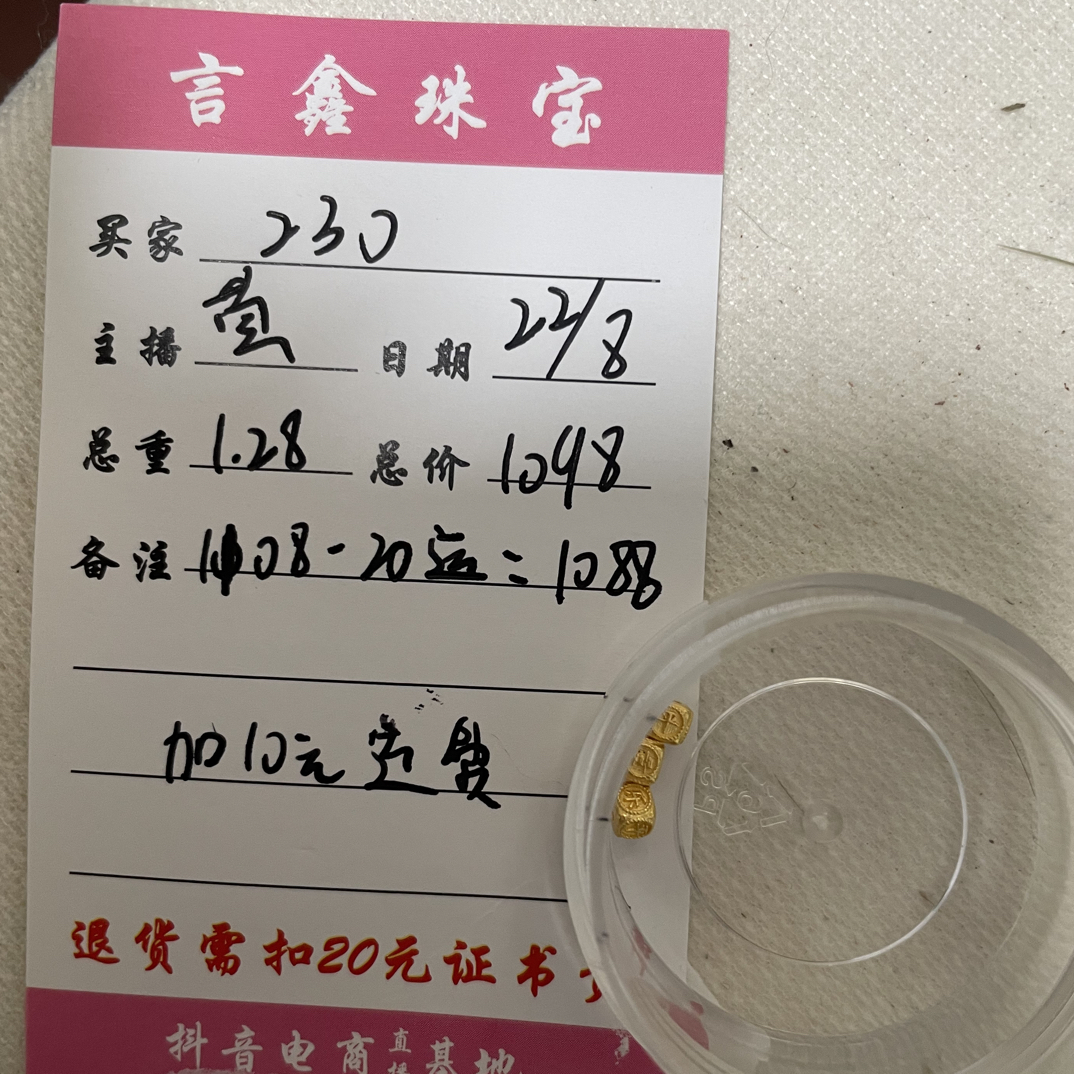 言鑫珠宝
买家 230
主播 日期 22/8
总重 1.28 总价 1098
备注 1108-20运=1088
加10元运费
退货需扣20元证书
抖音电商直播基地